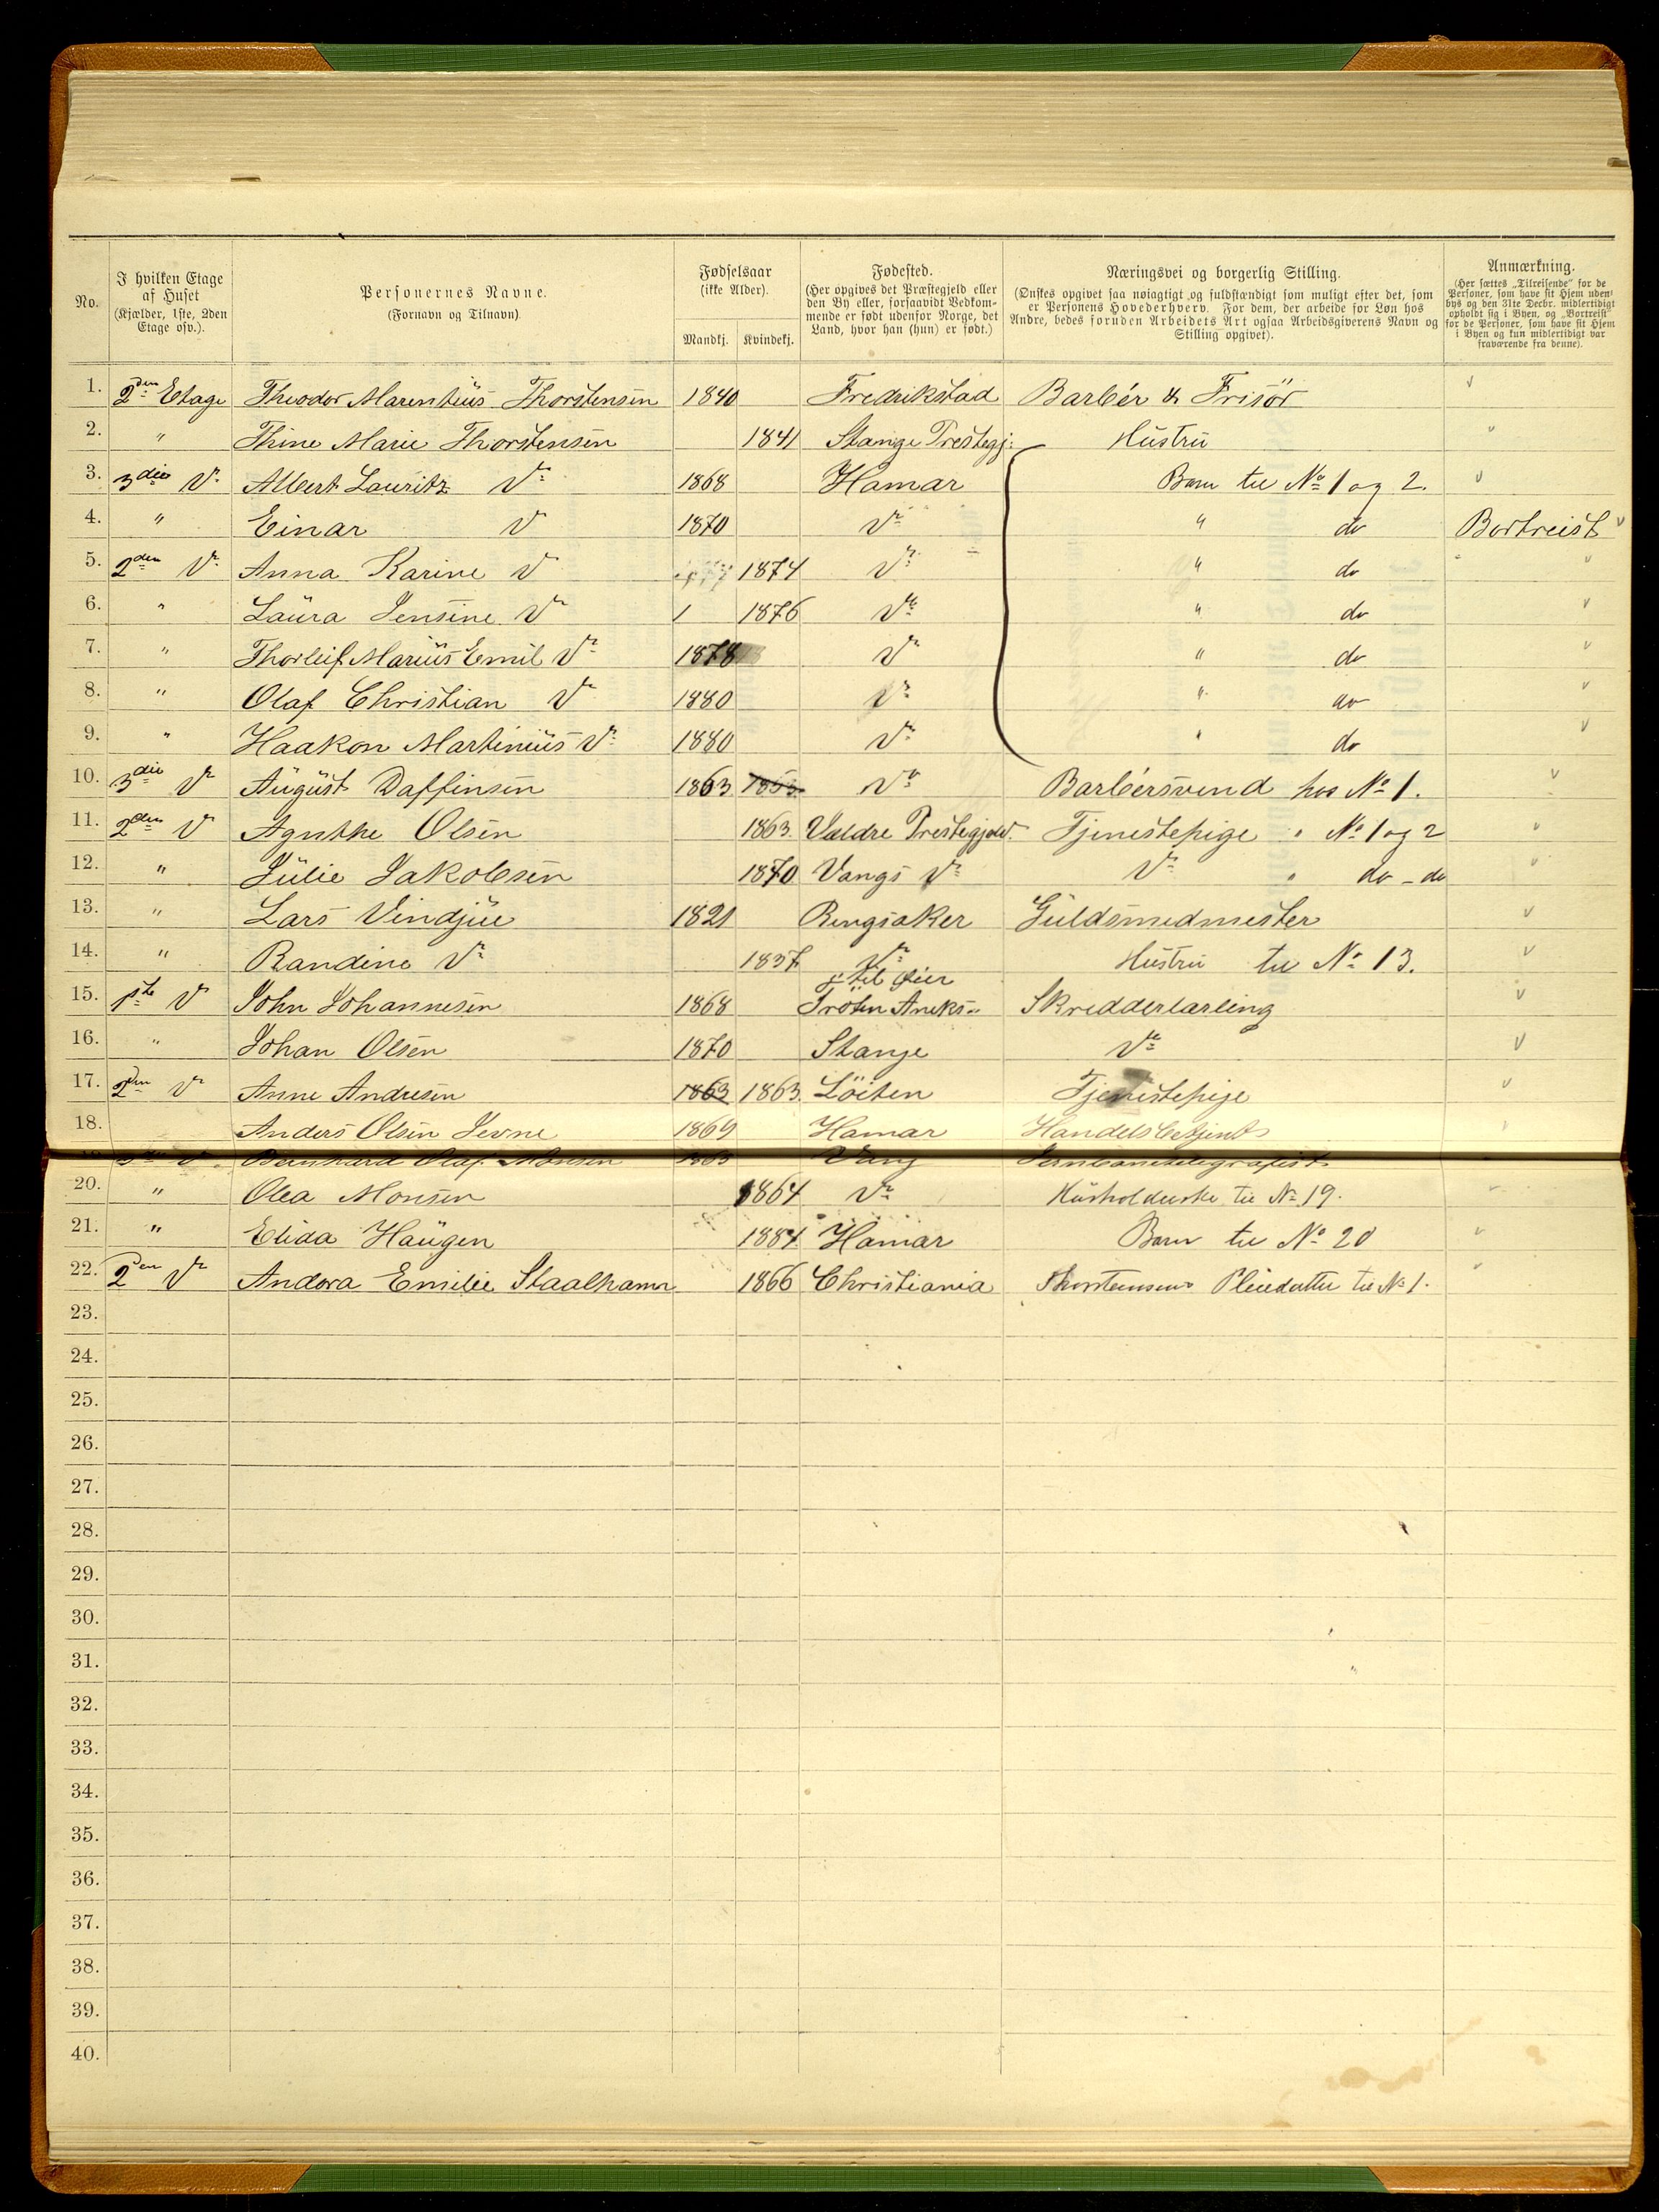 No.
I hvilken Etage af Huset (Kjælder, 1ste, 2den Etage osv.).
Personernes Navne. (Fornavn og Tilnavn)
Fødselsaar (ikke Alder).
Mandkj. Kvindekj.
Fødested. (Her opgives det Præstegjeld eller den By eller, forsaavidt Vedkommende er født udenfor Norge, det Land, hvor han (hun) er født.)
Næringsvei og borgerlig Stilling. (Ønskes opgivet saa nøiagtigt og fuldstændigt som muligt efter det, som er Personens Hovederhverv. For dem, der arbeide for Løn hos Andre, bedes foruden Arbeidets Art ogsaa Arbeidsgiverens Navn og Stilling opgivet).
Anmærkning. (Her sættes „Tilreisende" for de Personer, som have sit Hjem udenbys og den 31te Decbr. midlertidigt opholdt sig i Byen, og „Bortreist" for de Personer, som have sit Hjem i Byen og kun midlertidigt var fraværende fra denne).
1. 2den Etage Theodor Marentius Thorstensen 1840 Fredrikstad Barbér & Frisör
2. " Thine Marie Thorstensen 1841 Stange Prestegj: Hustru
3. 3die Do Albert Lauritz Do 1868 Hamar Barn til No 1 og 2.
4. " Einar Do 1870 Do " do Bortreist
5. 2den Do Anna Karine Do 1874 Do " do
6. " Laura Jensine Do 1876 Do " do
7. " Thorleif Marius Emil Do 1878 Do " do
8. " Olaf Christian Do 1880 Do " do
9. " Haakon Martinius Do 1880 Do " do
10. 3die Do August Daffinsen 1863 1863 Do Barbérsvend hos No 1.
11. 2den Do Agnthe Olsen 1863. Valdre Prestegjeld. Tjenestepige " No 1 og 2
12. " Julie Jakobsen 1870 Vangs Do Do " do - do
13. " Lars Vindjue 1821 Ringsaker Guldsmedmester
14. " Randine Do 1837 Do Hustru til No 13.
15. 1ste Do John Johannesen 1868 Tröten Aneks til Øier Skredderlærling
16. " Johan Olsen 1870 Stange Do
17. 2den Do Anne Andresen 1863 1863. Löiten Tjenestepige
18. Anders Olsen Jevne 1869 Hamar Handelsbetjent
Bernhard Olaf Monsen 1863 Vang Jernbanetelegrafist
20. " Olea Monsen 1864 Do Husholderske til No 19.
21. " Elida Haugen 1884 Hamar Barn til No 20
22. 2den Do Andora Emilie Staalhamr 1866 Christiania Thorstensens Pleiedatter til No 1.
23.
24.
25.
26.
27.
28.
29.
30.
31.
32.
33.
34.
35.
36.
37.
38.
39.
40.